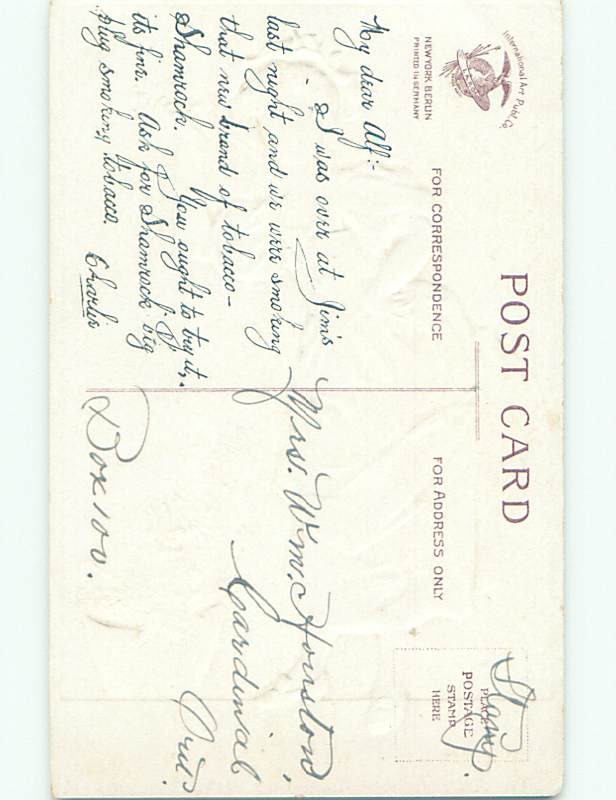 International Art Publ. Co.
NEW YORK BERLIN
PRINTED IN GERMANY
POST CARD
FOR CORRESPONDENCE
FOR ADDRESS ONLY
PLACE
POSTAGE
STAMP
HERE
Stamp.
My dear Alf:-
I was over at Jim's
last night and we were smoking
that new brand of tobacco-
Shamrock. You ought to try it,
its fine. Ask for Shamrock big
plug smoking tobacco.
Charlie
Mrs. Wm. 
Cardinal
Ont.
Box 100.